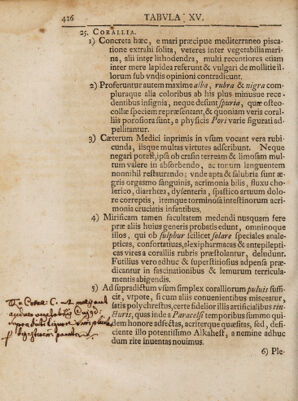 426 TABVLA XV.
25. CORALLIA.
1) Concreta hæc, e mari præcipue mediterraneo pisca-
tione extrahi solita, veteres inter vegetabilia mari-
na, alii inter lithodendra, multi recentiores etiam
inter mere lapidea referunt & vulgari de mollitie il-
lorum sub vndis opinioni contradicunt.
2) Proferuntur autem maxime alba, rubra & nigra com-
pluraque alia coloribus ab his plus minusue rece-
dentibus insignia, neque desunt spuria, quæ osteo-
collæ speciem repræsentant, & quoniam veris coral-
liis porosiora sunt, a physicis Pori varie figurati ad-
pellitantur.
3) Cæterum Medici inprimis in vsum vocant vera rubi-
cunda, iisque multas virtutes adscribunt. Neque
negari potest, ipsa ob crisin terream & limosam mul-
tum valere in absorbendo, ac torum languentem
nonnihil restaurando: vnde apta & salubria sunt æ-
gris orgasmo sanguinis, acrimonia bilis, fluxu chole-
rico, diarrhœa, dysenteria, spastico artuum dolo-
re correptis, itemque torminosa intestinorum acri-
monia cruciatis infantibus.
4) Mirificam tamen facultatem medendi nusquam fere
præ aliis huius generis probatis edunt, omninoque
illos, qui ob sulphur scilicet solare speciales analep-
ticas, confortatiuas, alexipharmacas & antepilepti-
cas vires a coralliis rubris præstolantur, deludunt.
Futilius vero adhuc & superstitiosius adpensa præ-
dicantur in fascinationibus & lemurum terricula-
mentis abigendis.
5) Ad supradictum vsum simplex coralliorum puluis suffi-
cit, vtpote, si cum aliis conuenientibus misceatur,
satis polychrestus, certe fidelior illis artificialibus tin-
cturis, quas inde a Paracelsi temporibus summo qui-
dem honore adfectas, acriterque quæsitas, sed, defi-
ciente illo potentissimo Alkahest, a nemine adhuc
dum rite inuentas nouimus.
6) Ple-